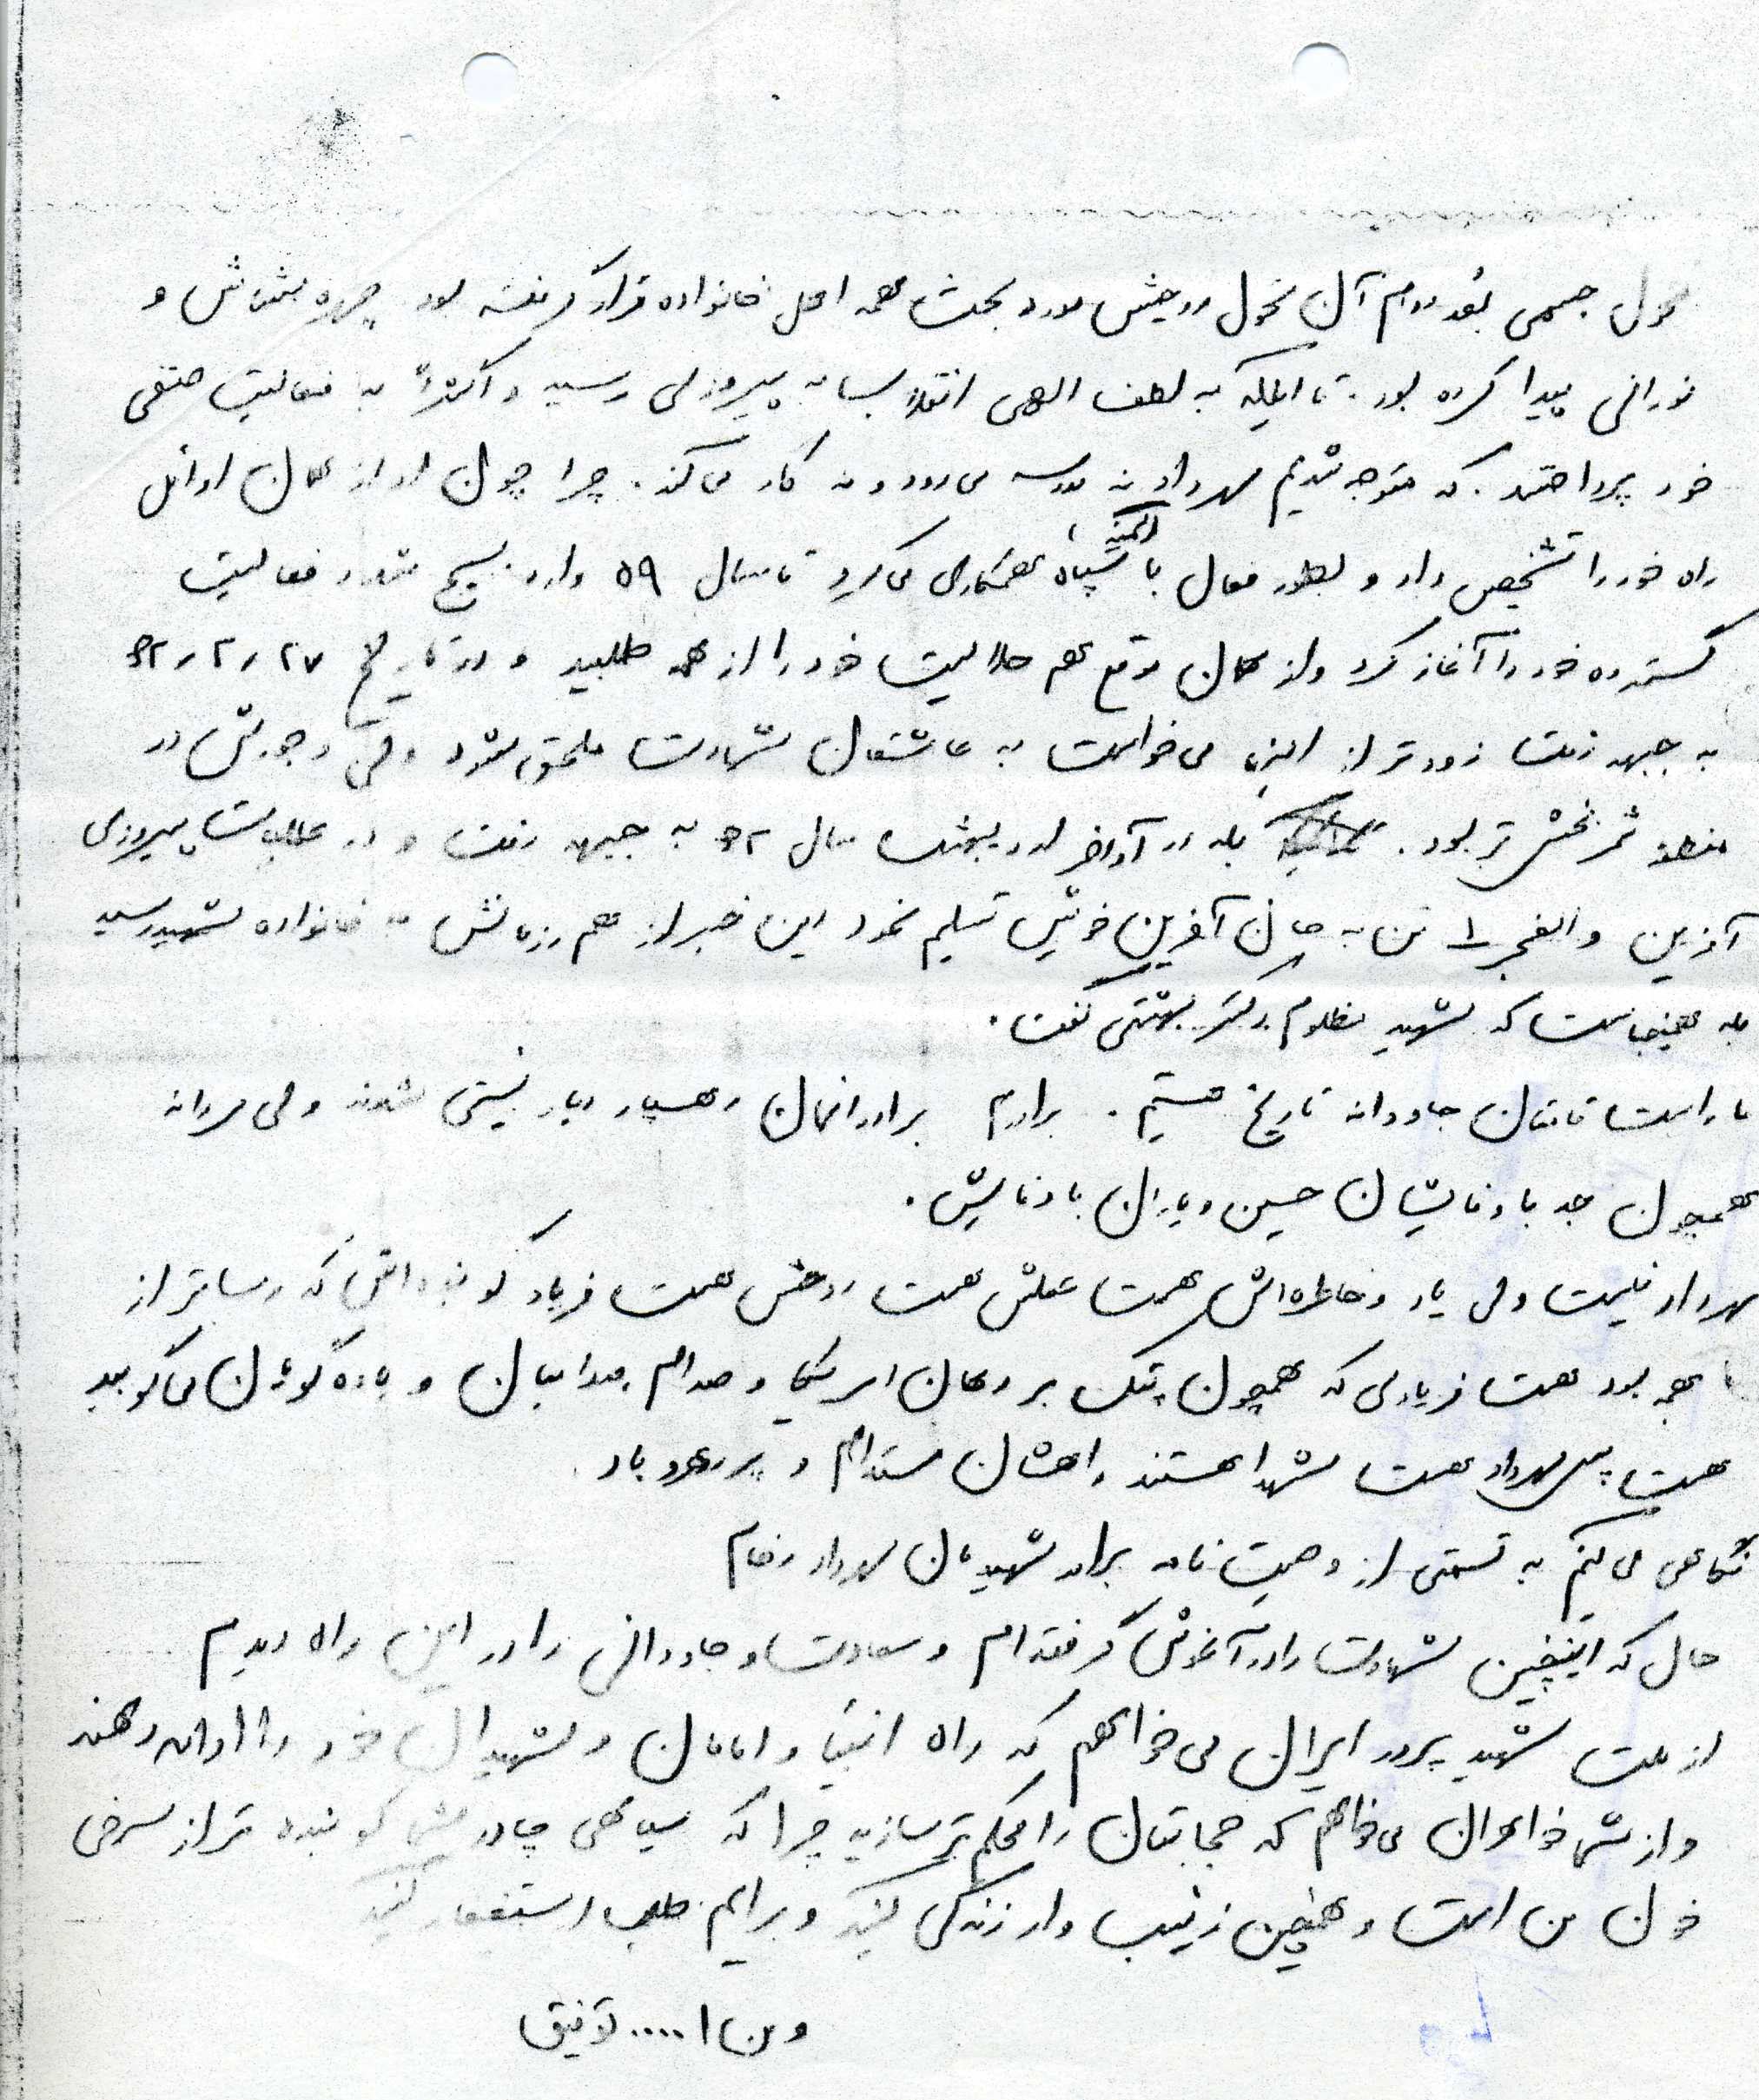 تحول جسمی بُعد دوم آن تحول روحیش مورد بحث همه اهل خانواده قرار گرفته بود چهره بشاش و
نورانی پیدا کرده بود. تا اینکه به لطف الهی انقلاب به پیروزی رسید و اکثراً به فعالیت صنفی
خود پرداختند. که متوجه شدیم مهرداد نه مدرسه می‌رود و نه کار می‌کند. چرا چون او از همان اوائل
راه خود را تشخیص داد و بطور فعال با کمیته، سپاه همکاری می‌کرد تا سال ۵۹ وارد بسیج شد و فعالیت
گسترده خود را آغاز کرد و از همان موقع هم حلالیت خود را از همه طلبید و در تاریخ ۲۷ ر ۲ ر ۶۲
به جبهه رفت زودتر از اینها می‌خواست به عاشقان شهادت ملحق شود ولی وجودش در
منطقه ثمربخش‌تر بود. بله در آواخر اردیبهشت سال ۶۲ به جبهه رفت و در عملیات پیروزی
آفرین والفجر ۱ تن به جان آفرین خویش تسلیم نمود این خبر از هم رزمانش به خانواده شهید رسید
بله همینجاست که شهید مظلوم دکتر بهشتی گفت.
ما راست قامتان جاودانه تاریخ هستیم. برادرم برادرانمان رهسپار دیار نیستی شدند ولی مردانه
همچون جد باوفایشان حسین و یاران باوفایش.
مهرداد نیست ولی یاد و خاطره‌اش هست عملش هست روحش هست فریاد گوینده‌اش که رساتر از
همه بود هست فریادی که همچون پتک بر دهان امریکا و صدام و صدامیان و یاوه گویان می‌کوبید
هست پس مهرداد هست شهدا هستند راهشان مستدام و پر رهرو باد.
نگاهی می‌کنیم به قسمتی از وصیت نامه برادر شهیدمان مهرداد
حال که اینچنین شهادت را در آغوش گرفته‌ام و سعادت و جاودانی را در این راه دیدم
از ملت شهید پرور ایران می‌خواهم که راه انبیا و امامان و شهیدان خود را ادامه دهند
و از شما خواهران می‌خواهم که حجابتان را محکم‌تر سازید چرا که سیاهی چادر کوبنده‌تر از سرخی
خون من است و همچنین زینب وار زندگی کنید و برایم طلب استغفار کنید
و من ا..... توفیق